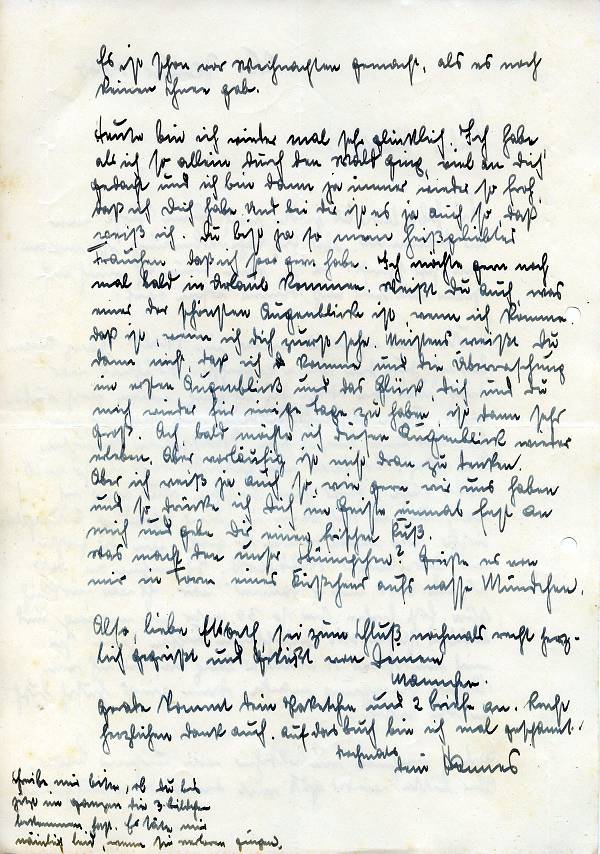 Es ist schon vor Weihnachten gemacht, als es noch
keinen Schnee gab.
Heute bin ich wieder mal sehr glücklich. Ich habe
als ich so allein durch den Wald ging, viel an Dich
gedacht und ich bin dann ja immer wieder so froh,
daß ich Dich habe. Und bei dir ist es ja auch so, daß
weiß ich. Du bist ja so mein heißgeliebtes
Frauchen, daß ich sooo gern habe. Ich möchte gern noch
mal bald in Urlaub kommen. Weißt Du auch, was
einer der schönsten Augenblicke ist, wenn ich komme.
Das ist, wenn ich dich zuerst sehe. Meistens weißt Du
dann nicht, daß ich komme und die Überraschung
im ersten Augenblick und das Glück, Dich und Du
mich wieder für einige Tage zu haben, ist dann sehr
groß. Ach, bald möchte ich diesen Augenblick wieder
erleben. Aber vorläufig ist nicht dran zu denken.
Aber ich weiß ja auch so, wie gern wir uns haben
und so drücke ich Dich im Geiste immer fest an
mich und gebe Dir einen frischen Kuß.
Was macht den unser ? Grüße es von
mir in Form eines Küßchens aufs nasse Mündchen.
Also, liebe Elsbeth, sei zum Schluß nochmals recht herz-
lich gegrüßt und geküßt von Deinem
Männchen.
Gerade kommt dein Päckchen und 2 Briefe an. Recht
herzlichen Dank auch. Auf das Buch bin ich mal gespannt.
nochmals
dein Hannes
Schreibe mir bitte, ob Du bis
jetzt im ganzen die 3 Bildchen
bekommen hast. Es täte mir
nämlich leid, wenn sie verloren gingen.